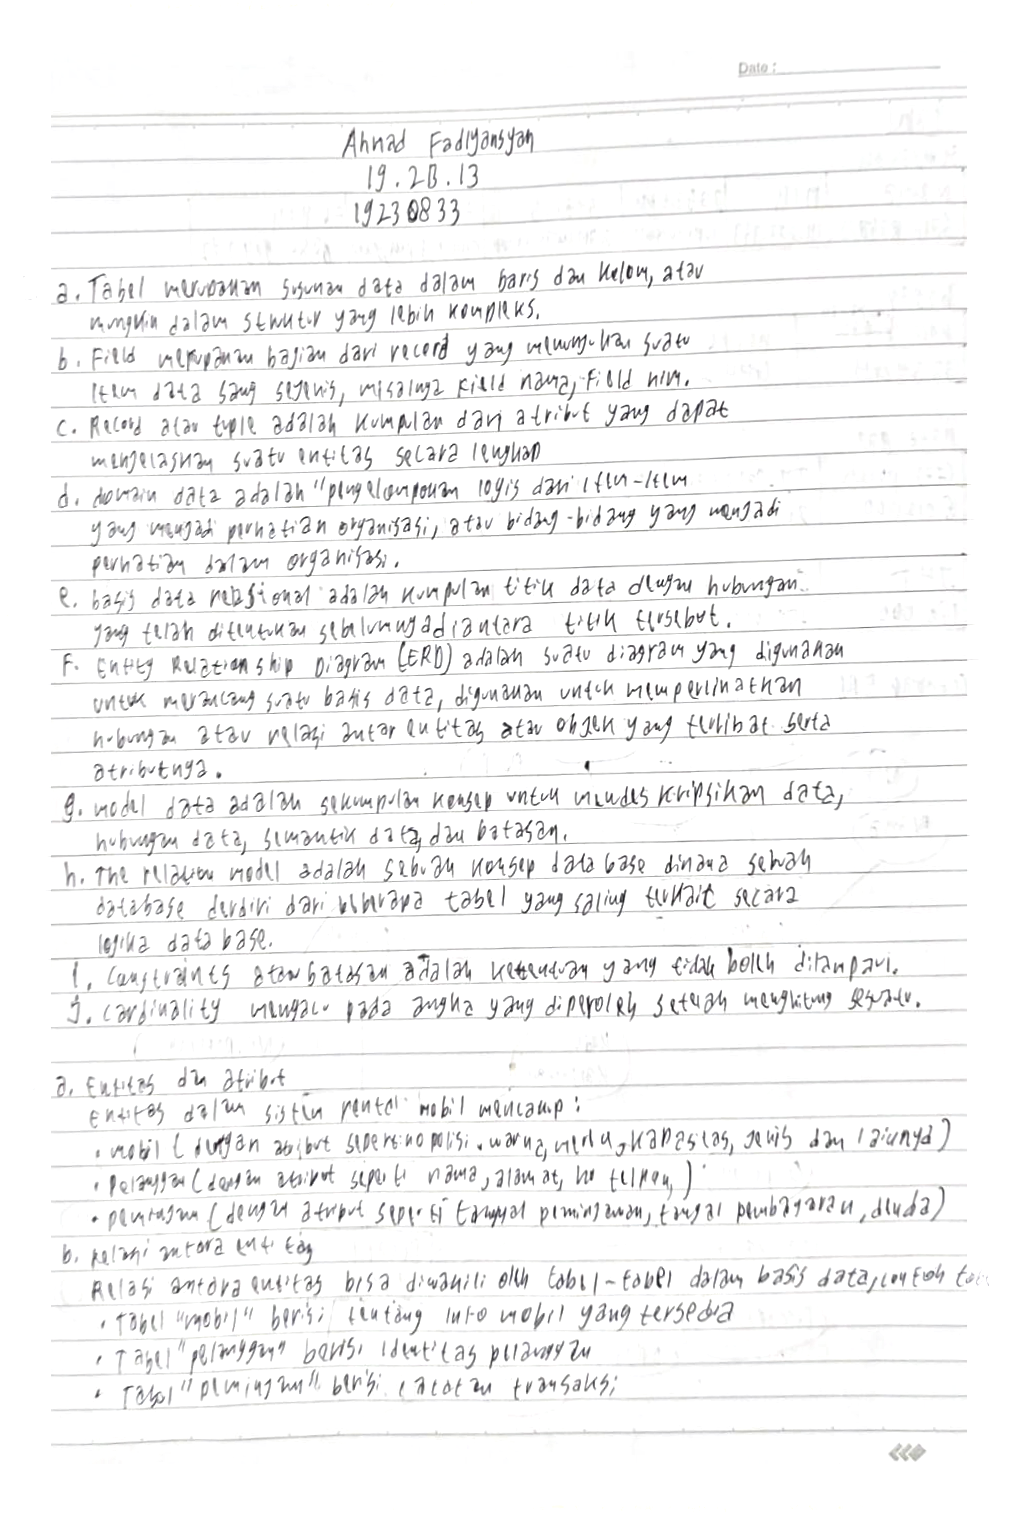 Date :
Ahmad Fadlyansyah
19.2B.13
19230833
a. Tabel merupakan susunan data dalam baris dan kolom, atau
mungkin dalam struktur yang lebih kompleks.
b. Field merupakan bagian dari record yang menunjukan suatu
Item data yang sejenis, misalnya Field nama, Field nim.
c. Record atau tuple adalah Kumpulan dari atribut yang dapat
menjelaskan suatu entitas secara lengkap
d. domain data adalah "pengelompokan logis dari item-item
yang menjadi perhatian organisasi, atau bidang-bidang yang menjadi
perhatian dalam organisasi.
e. basis data relasional adalah kumpulan titik data dengan hubungan
yang telah ditentukan sebelumnya diantara titik tersebut.
F. Entity Relationship Diagram (ERD) adalah suatu diagram yang digunakan
untuk merancang suatu basis data, digunakan untuk memperlihatkan
hubungan atau relasi antar entitas atau objek yang terlibat serta
atributnya.
g. model data adalah sekumpulan konsep untuk mendeskripsikan data,
hubungan data, semantik data, dan batasan.
h. The relation model adalah sebuah konsep database dimana sebuah
database derdiri dari beberapa tabel yang saling terkait secara
logika database.
i. Constraints atau batasan adalah ketentuan yang tidak boleh dilanpari.
J. Cardinality mengacu pada angka yang diperoleh setelah menghitung sesuatu.
a. Entitas dan atribut
Entitas dalam sistem rental mobil mencakup:
• mobil (dengan atribut seperti no polisi, warna, merk, kapasitas, jenis dan lainnya)
• pelanggan (dengan atribut seperti nama, alamat, no telpon,)
• peminjam (dengan atribut seperti tanggal peminjaman, tanggal pembayaran, denda)
b. relasi antara entitas
Relasi antara entitas bisa diwakili oleh tabel-tabel dalam basis data, contoh
• Tabel "mobil" berisi tentang info mobil yang tersedia
• Tabel "pelanggan" berisi identitas pelanggan
• Tabel "peminjam" berisi catatan transaksi